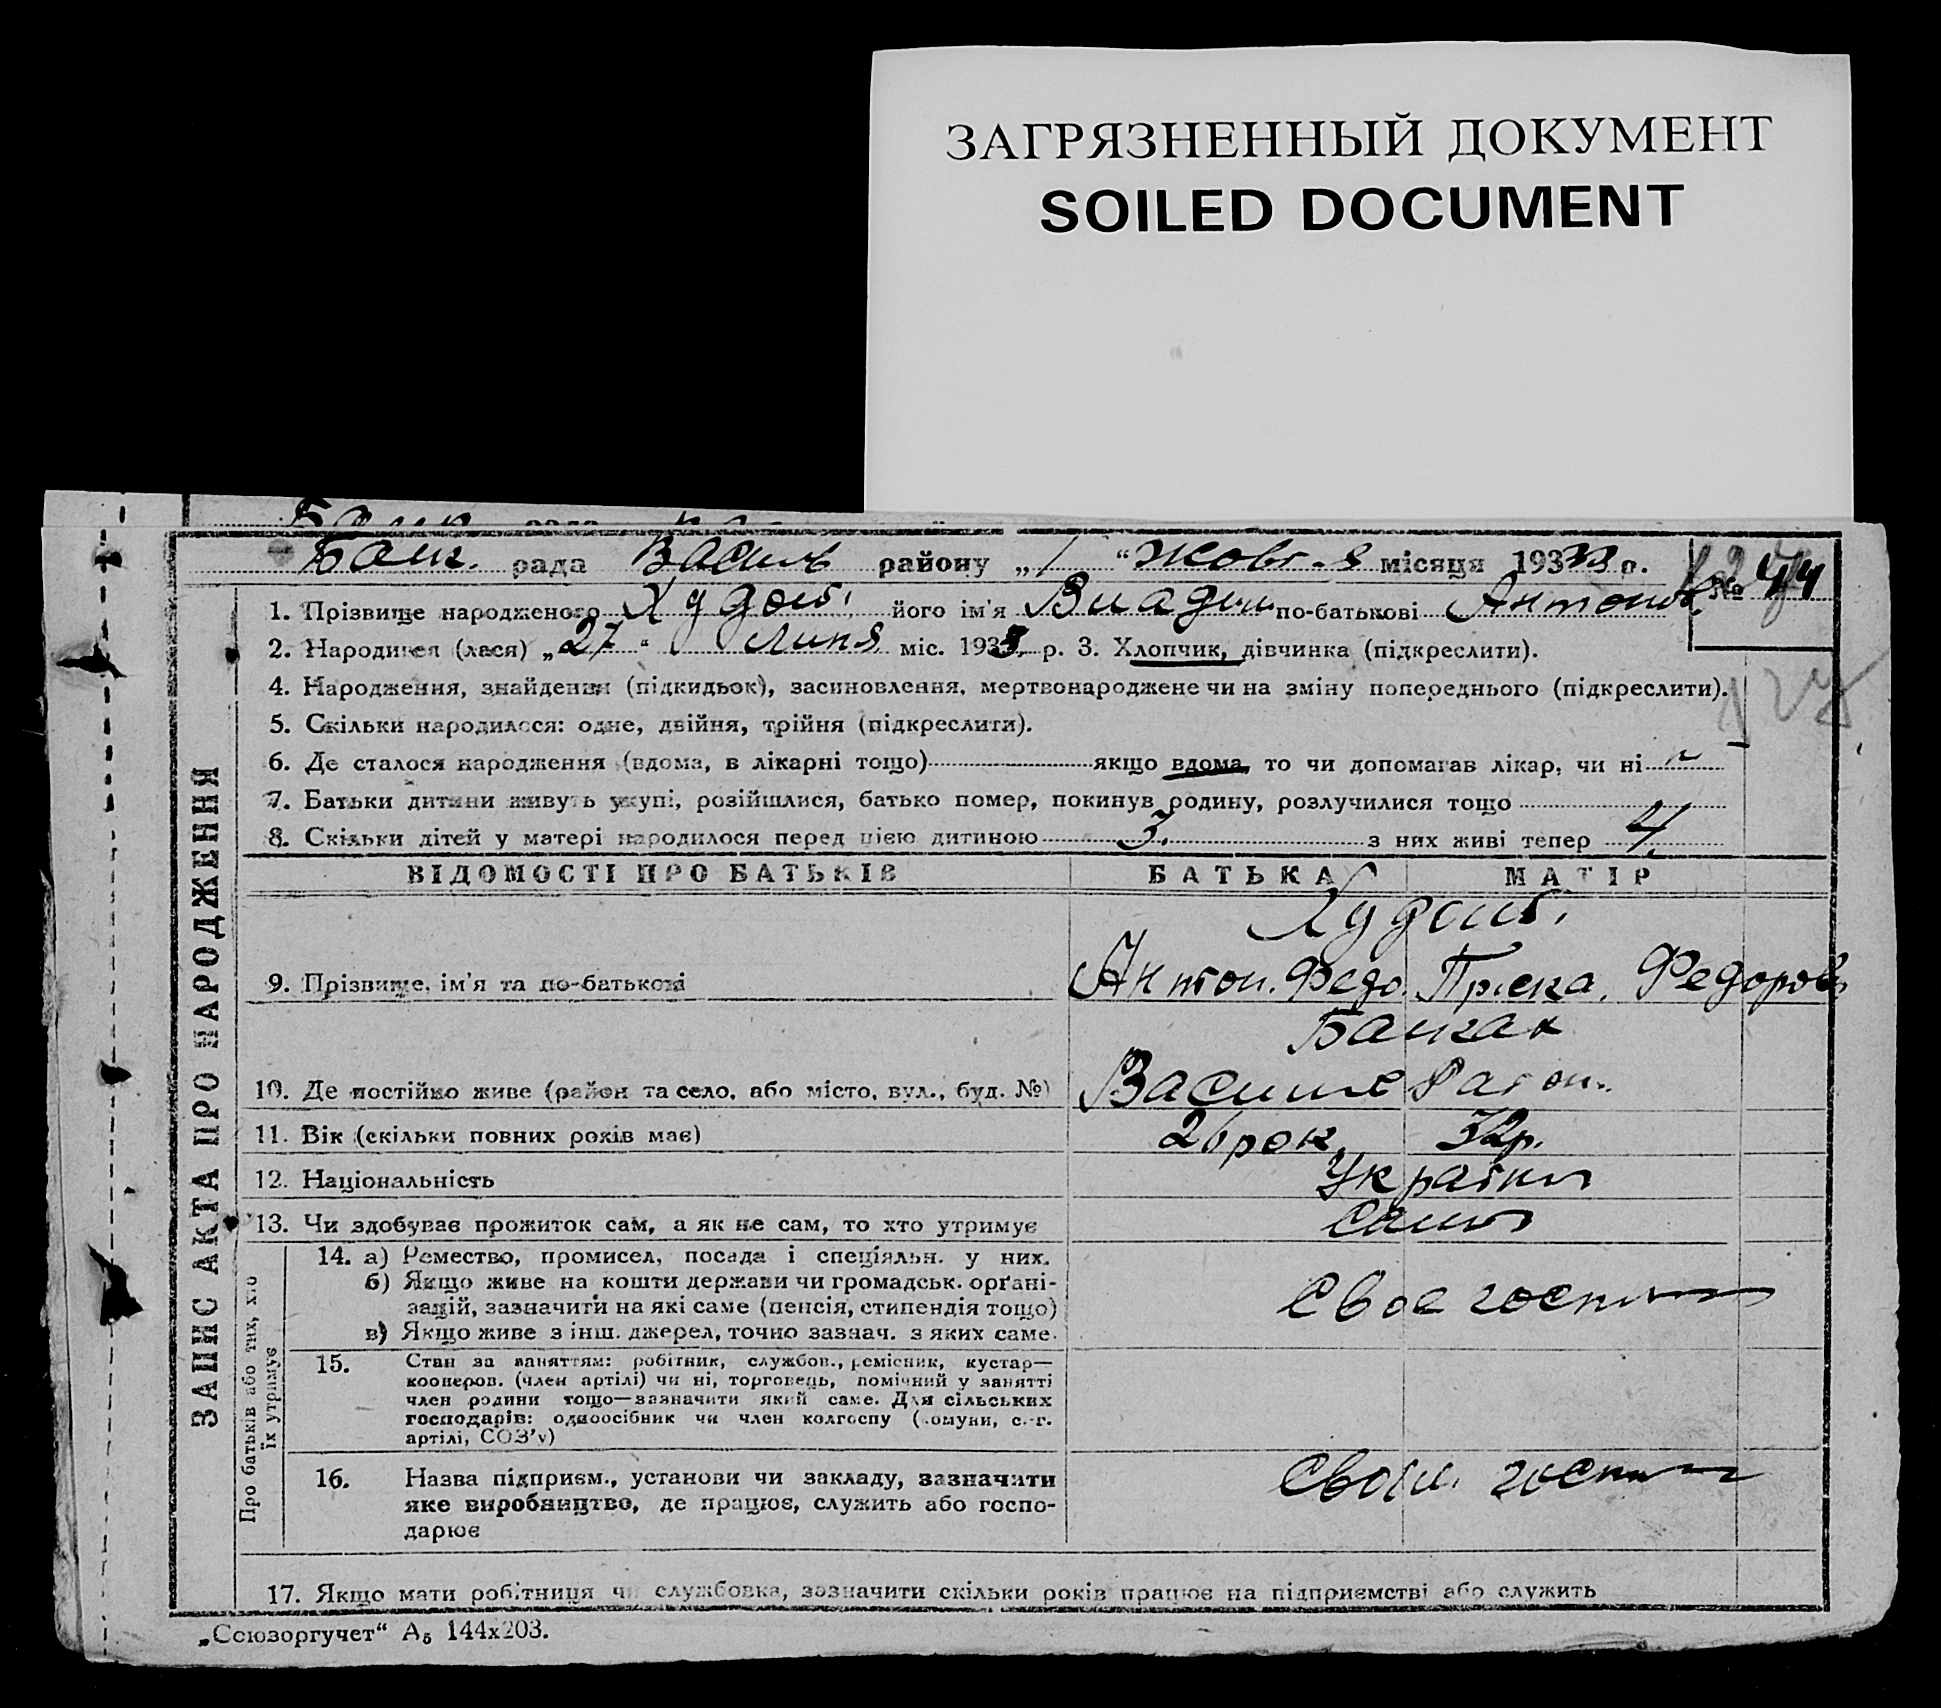 ЗАГРЯЗНЕННЫЙ ДОКУМЕНТ
SOILED DOCUMENT
рада району „1“ Жовт-я місяця 1933 р. № 44
1. Прізвище народженого його ім'я по-батькові Антонов.
2. Народився (лася) „27“ Липя міс. 1933 р. 3. Хлопчик, дівчинка (підкреслити).
4. Народження, знайдення (підкидьок), засиновлення, мертвонароджене чи на зміну попереднього (підкреслити).
5. Скільки народилося: одне, двійня, трійня (підкреслити).
6. Де сталося народження (вдома, в лікарні тощо) якщо вдома, то чи допомагав лікар, чи ні
7. Батьки дитини живуть укупі, розійшлися, батько помер, покинув родину, розлучилися тощо
8. Скільки дітей у матері народилося перед цією дитиною 3. з них живі тепер 4.
ВІДОМОСТІ ПРО БАТЬКІВ БАТЬКА МАТІР
9. Прізвище, ім'я та по-батькові Антон. Федо. Пріска. Федоров
10. Де постійно живе (район та село, або місто, вул., буд. №)
11. Вік (скільки повних років має) 26 рок. 32 р.
12. Національність
13. Чи здобуває прожиток сам, а як не сам, то хто утримує
14. а) Ремество, промисел, посада і спеціяльн. у них.
б) Якщо живе на кошти держави чи громадськ. орґані-
зацій, зазначити на які саме (пенсія, стипендія тощо)
в) Якщо живе з інш. джерел, точно зазнач. з яких саме.
15. Стан за заняттям: робітник, службов., ремісник, кустар—
кооперов. (член артілі) чи ні, торговець, помічний у занятті
член родини тощо—зазначити який саме. Для сільських
господарів: одноосібник чи член колгоспу (комуни, с.-г.
артілі, СОЗ'у)
16. Назва підприєм., установи чи закладу, зазначити
яке виробництво, де працює, служить або госпо-
дарює
17. Якщо мати робітниця чи службовка, зазначити скільки років працює на підприємстві або служить
ЗАПИС АКТА ПРО НАРОДЖЕННЯ
Про батьків або тих, хто
їх утримує
„Союзоргучет“ А5 144х203.